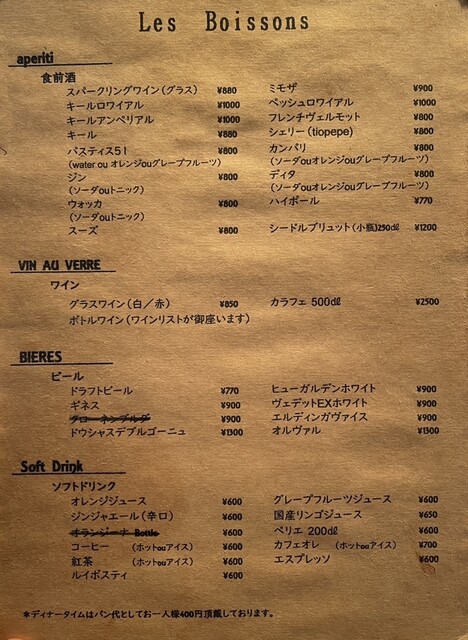 Les Boissons
aperiti
食前酒
スパークリングワイン(グラス) ¥880
キールロワイアル ¥1000
キールアンペリアル ¥1000
キール ¥880
パスティス51 ¥800
(water ou オレンジouグレープフルーツ)
ジン ¥800
(ソーダouトニック)
ウォッカ ¥800
(ソーダouトニック)
スーズ ¥800
ミモザ ¥900
ペッシュロワイアル ¥1000
フレンチヴェルモット ¥800
シェリー(tiopepe) ¥800
カンパリ ¥800
(ソーダouオレンジouグレープフルーツ)
ディタ ¥800
(ソーダouオレンジouグレープフルーツ)
ハイボール ¥770
シードルブリュット(小瓶)250dℓ ¥1200
VIN AU VERRE
ワイン
グラスワイン(白/赤) ¥850
カラフェ 500dℓ ¥2500
ボトルワイン(ワインリストが御座います)
BIERES
ビール
ドラフトビール ¥770
ギネス ¥900
グローネンブルグ ¥900
ドウシャスデブルゴーニュ ¥1300
ヒューガルデンホワイト ¥900
ヴェデットEXホワイト ¥900
エルディンガヴァイス ¥900
オルヴァル ¥1300
Soft Drink
ソフトドリンク
オレンジジュース ¥600
ジンジャエール(辛口) ¥600
オランジーナ Bottle ¥600
コーヒー (ホットouアイス) ¥600
紅茶 (ホットouアイス) ¥600
ルイボスティ ¥600
グレープフルーツジュース ¥600
国産リンゴジュース ¥650
ペリエ 200dℓ ¥600
カフェオレ (ホットouアイス) ¥700
エスプレッソ ¥600
*ディナータイムはパン代としてお一人様400円頂戴しております。